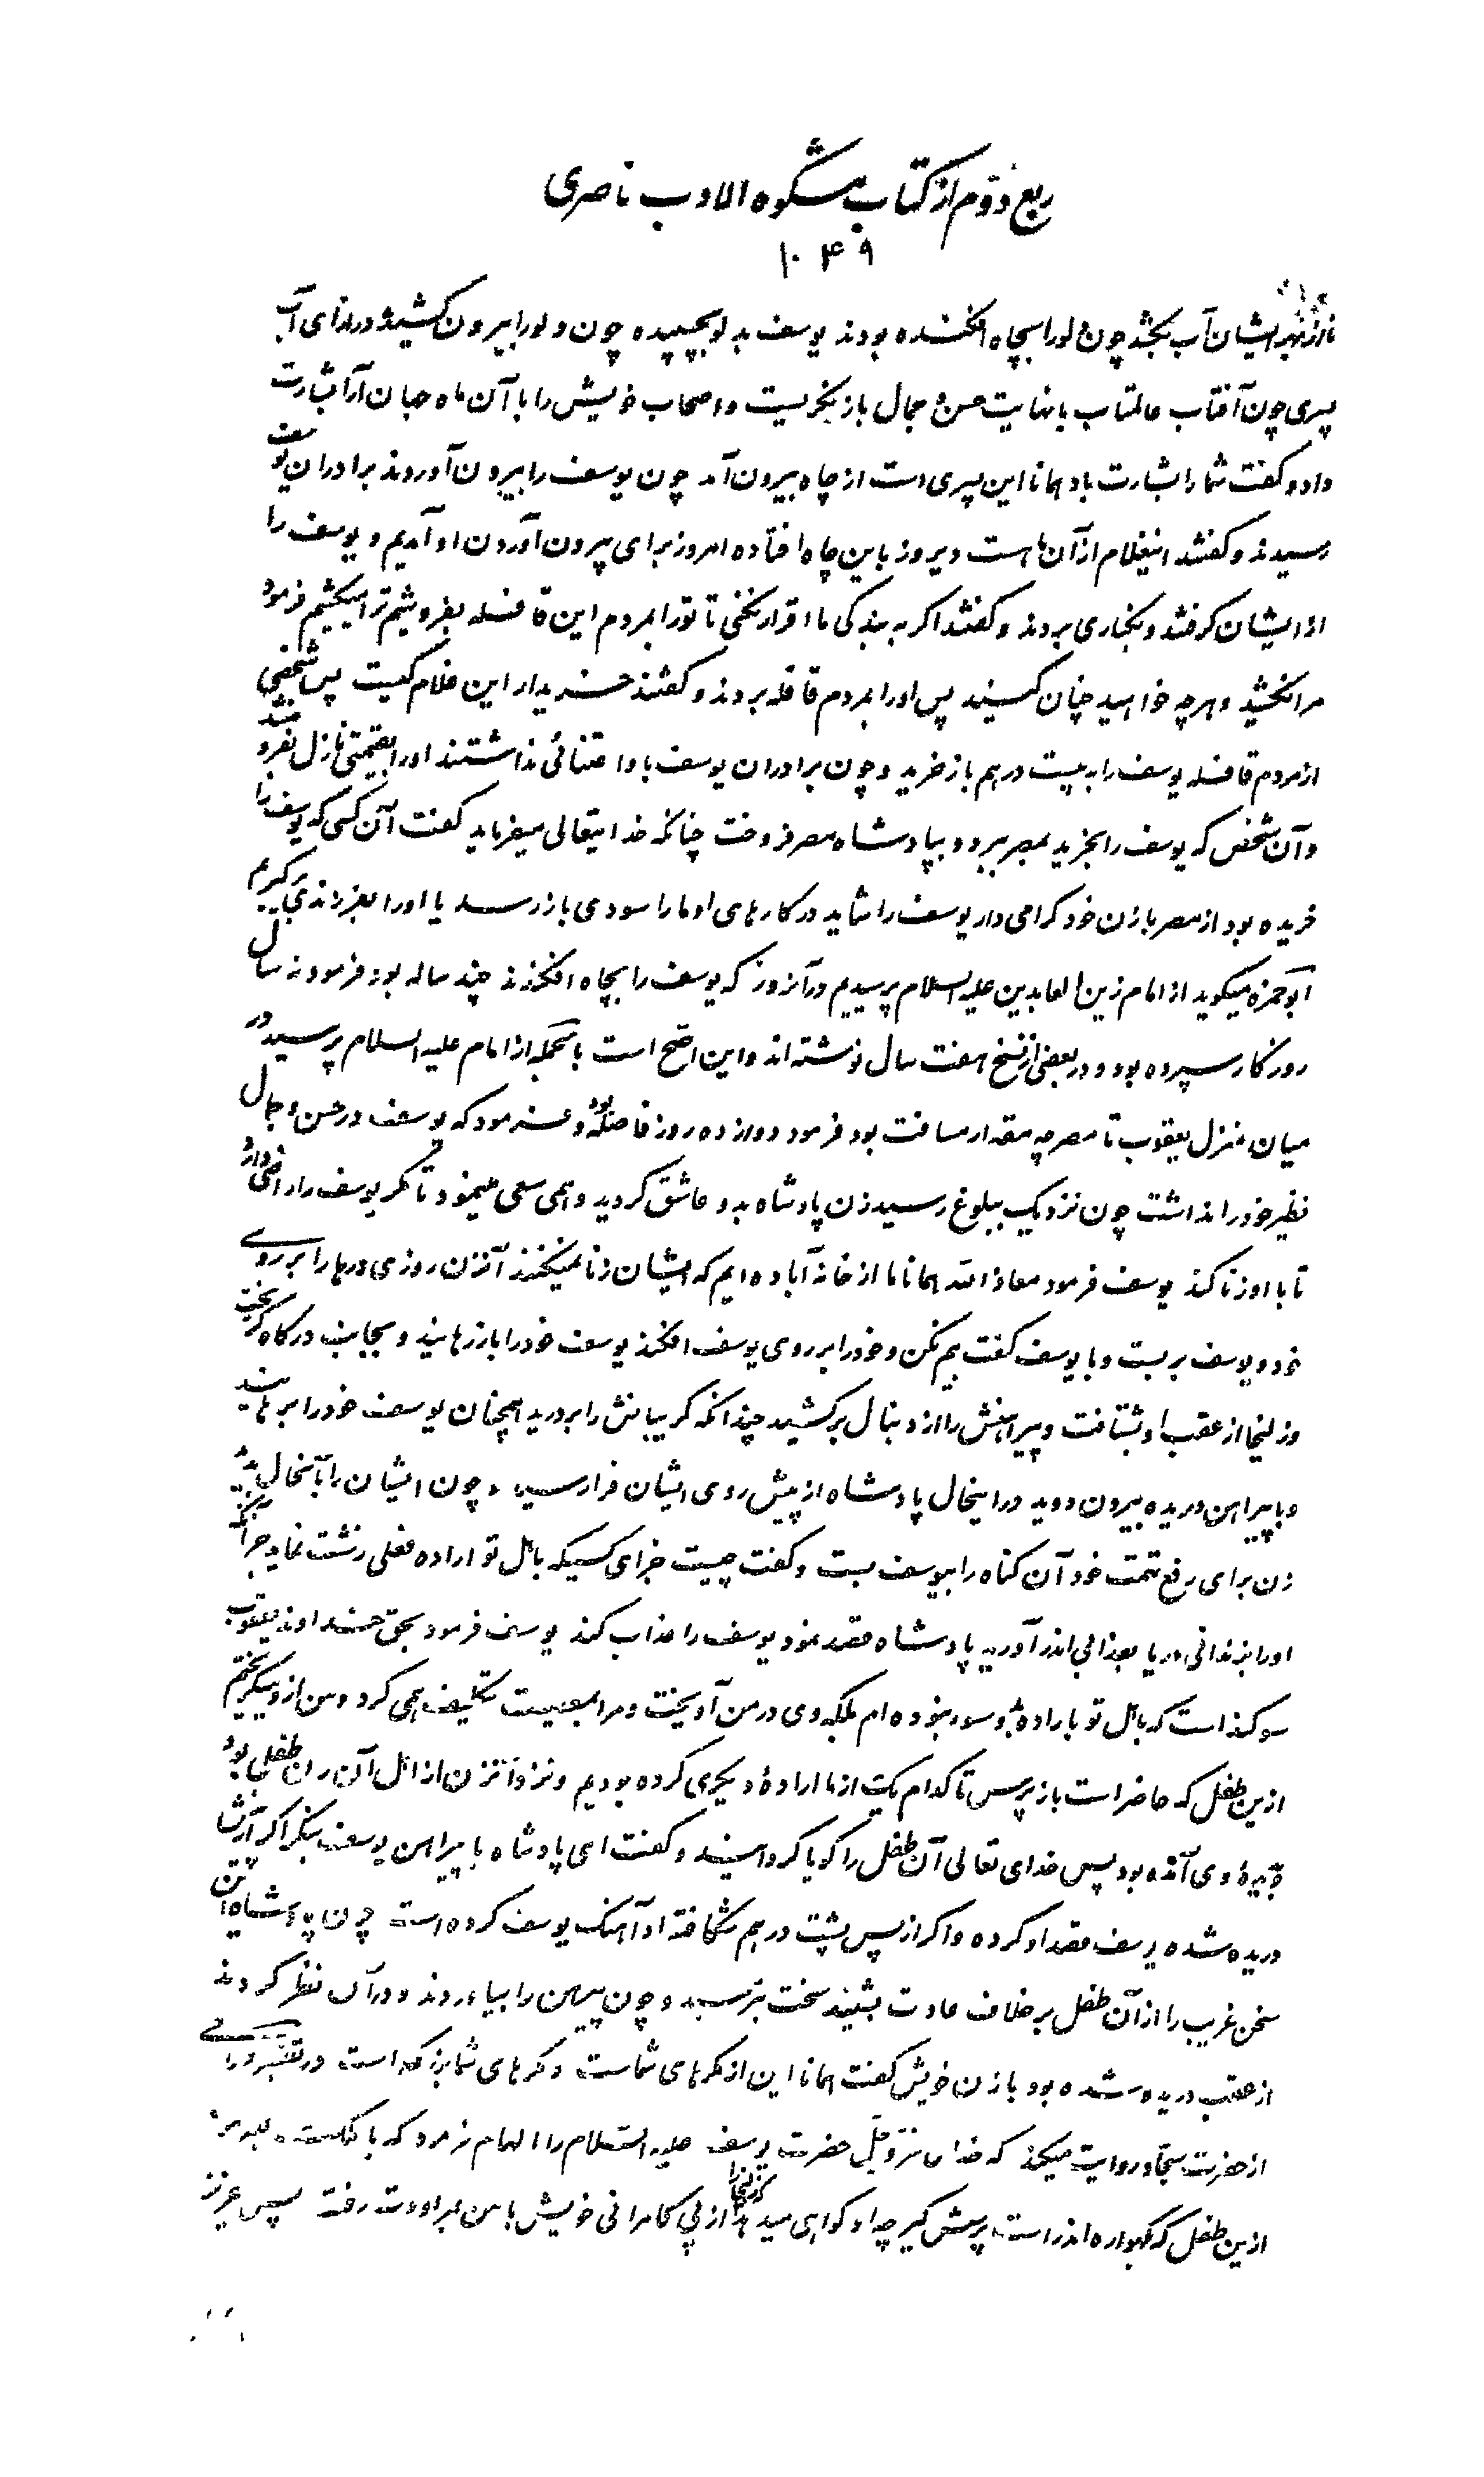 ربع دوّم از کتاب مشکوه الادب ناصری
۱۰۴۹
تا از بهر ایشان آب بکشد چون دلو را بچاه افکنده بودند یوسف بدلو بچسپیده چون دلو را بیرون کشید در ازای آب
پسری چون آفتاب عالمتاب با نهایت حسن و جمال باز نگریست و اصحاب خویش را با آن ماه جهان آرا بشارت
داد و گفت شما را بشارت باد همانا این پسری است از چاه بیرون آمد چون یوسف را بیرون آوردند برادران یوسف
رسیدند و گفتند اینغلام از آن ماست دیروز باین چاه افتاده امروز برای بیرون آوردن او آمدیم و یوسف را
از ایشان گرفتند و بکناری بردند و گفتند اگر به بندگی ما اقرار نکنی تا تو را بمردم این قافله بفروشیم ترا میکشیم فرمود
مرا نکشید و هرچه خواهید چنان کنید پس او را بمردم قافله بردند و گفتند خریدار این غلام کیست پس شخصی
از مردم قافله یوسف را به بیست درهم باز خرید و چون برادران یوسف باو اعتنائی نداشتند او را بقیمتی نازل بفروختند
و آن شخص که یوسف را بخرید بمصر ببرد و بپادشاه مصر فروخت چنانکه خدایتعالی میفرماید گفت آن کسی که یوسف را
خریده بود از مصر بازن خود گرامی دار یوسف را شاید در کارهای او ما را سودی باز رسد یا او را بفرزندی برگیریم
ابوحمزه میگوید از امام زین العابدین علیه السلام پرسیدیم در آنروز که یوسف را بچاه افکندند چند ساله بود فرمود نه سال
روزگار سپرده بود و در بعضی از نسخ هفت سال نوشته اند و این اصّح است بالجمله از امام علیه السلام پرسید در
میان منزل یعقوب تا مصر چه مقدار مسافت بود فرمود دوازده روز فاصله بود و فرمود که یوسف در حسن و جمال
نظیر خود را نداشت چون نزدیک ببلوغ رسید زن پادشاه بدو عاشق گردید و همی سعی مینمود تا مگر یوسف را راضی دارد
تا با او زنا کند یوسف فرمود معاذ الله همانا ما از خانه آباده ایم که ایشان زنا نمیکنند آنزن روزی درها را بر روی
خود و یوسف بر بست و با یوسف گفت بیم مکن و خود را بر روی یوسف افکند یوسف خود را باز رهانید و بجانب درگاه گریخت
و زلیخا از عقب او بشتافت و پیراهنش را از دنبال بر کشید چندانکه گریبانش را بر درید همچنان یوسف خود را برهانید
و با پیراهن دریده بیرون دوید در اینحال پادشاه از پیش روی ایشان فرا رسید و چون ایشان را بآنحال بدید
زن برای رفع تهمت خود آن گناه را بیوسف بست و گفت چیست جزای کسیکه باهل تو اراده فعلی زشت نماید جز آنکه
او را بزندانی در یا بعذابی اندر آورید پادشاه قصد نمود یوسف را عذاب کند یوسف فرمود بحق خداوند یعقوب
سوگند است که باهل تو باراده بد و سوء نبوده ام بلکه وی در من آویخت و مرا بمعصیت تکلیف همی کرد و من از وی میگریختم
ازین طفل که حاضر است باز پرس تا کدام یک از ما اراده دیگری کرده بودیم و نزد آنزن از اهل آن زن طفلی بود
وی آمده بود پس خدای تعالی آن طفل را گویا گردانید و گفت ای پادشاه با پیراهن یوسف بنگر اگر از پیش
دریده شده یوسف قصد او کرده و اگر از پس پشت در هم شکافته او آهنگ یوسف کرده است چون پادشاه این
سخن غریب را از آن طفل بر خلاف عادت بشنید سخت بترسید و چون پیرهن را بیاوردند و در آن نظر کردند
از عقب دریده شده بود بازن خویش گفت همانا این از مکرهای شماست و مکرهای شما بزرگ است و در تفسیر
از حضرت سجاد روایت میکند که خدای عزّ و جلّ حضرت یوسف علیه السّلام را الهام فرمود که با ملک
ازین طفل که بگهواره اندر است پرسش گیر چه او گواهی میدهد که زلیخا از پی کامرانی خویش با من بمراودت رفت پس عزیز